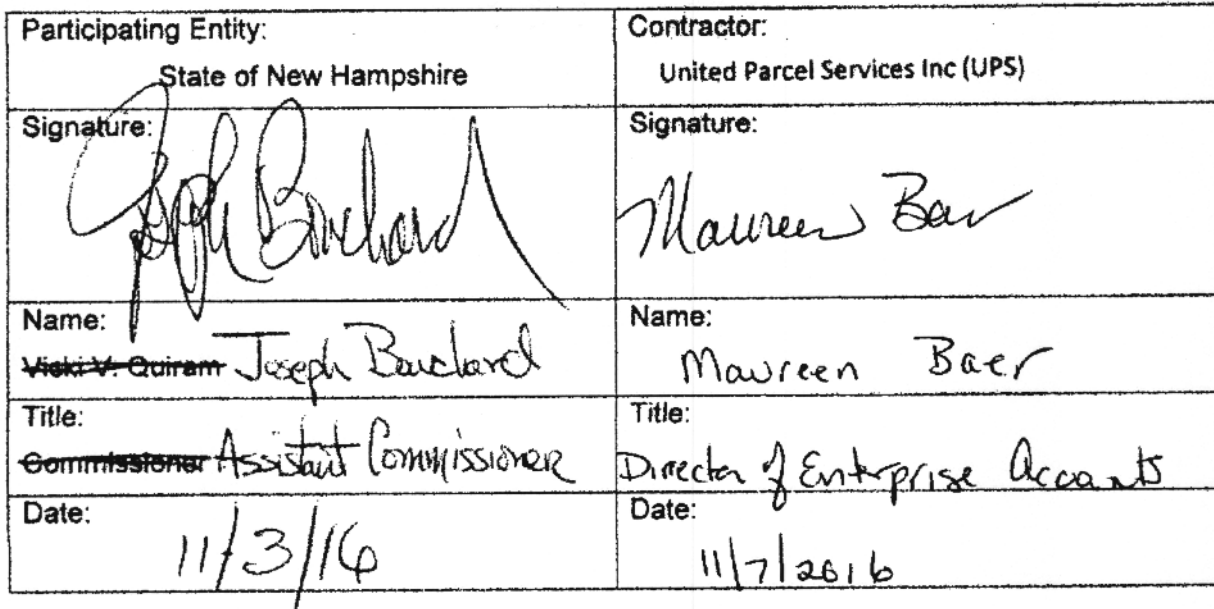 Participating Entity:
State of New Hampshire
Contractor:
United Parcel Services Inc (UPS)
Signature:
Joseph Bouchard
Signature:
Maureen Baer
Name:
Vicki V. Quiram Joseph Bouchard
Name:
Maureen Baer
Title:
Commissioner Assistant Commissioner
Title:
Director of Enterprise Accounts
Date:
11/3/16
Date:
11/7/2016